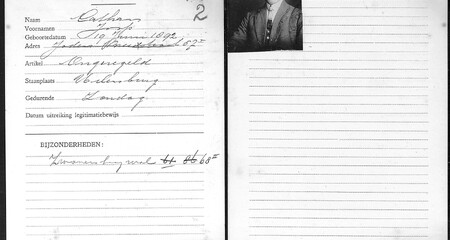 2
Naam Cathars
Voornamen
Geboortedatum 19 Juni 1892
Adres Joden Breestraat 87
Artikel Ongeregeld
Standplaats Uilenburg
Gedurende Zondag
Datum uitreiking legitimatiebewijs
BIJZONDERHEDEN:
Zwanenburgwal 61 86 68